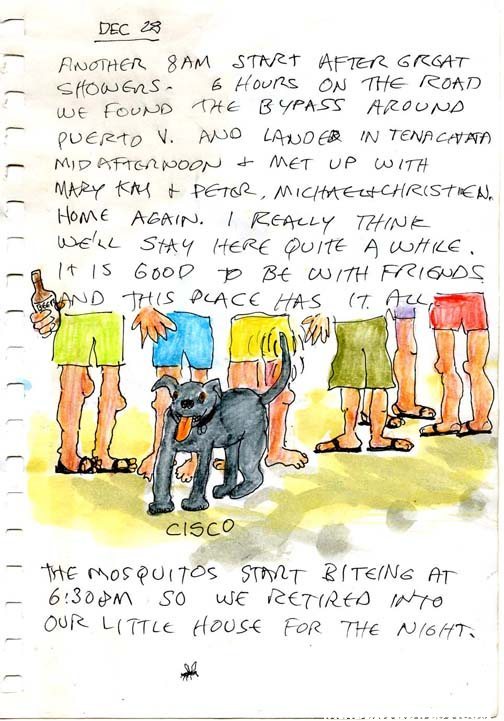 DEC 28
ANOTHER 8AM START AFTER GREAT
SHOWERS. 6 HOURS ON THE ROAD
WE FOUND THE BYPASS AROUND
PUERTO V. AND LANDED IN TENACATATA
MID AFTERNOON + MET UP WITH
MARY KAY + PETER, MICHAEL + CHRISTIEN.
HOME AGAIN. I REALLY THINK
WE'LL STAY HERE QUITE A WHILE.
IT IS GOOD TO BE WITH FRIENDS
AND THIS PLACE HAS IT ALL
BEER
CISCO
THE MOSQUITOS START BITEING AT
6:30PM SO WE RETIRED INTO
OUR LITTLE HOUSE FOR THE NIGHT.